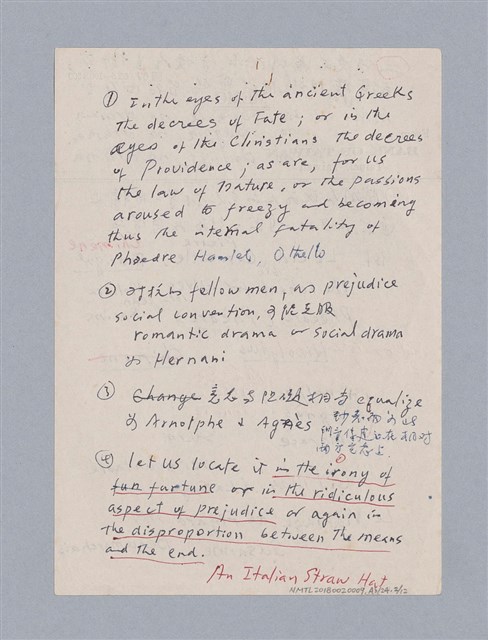 ① In the eyes of the ancient Greeks
the decrees of Fate; or in the
eyes of the Christians the decrees
of Providence; as are, for us
the law of Nature, or the passions
aroused to freezy and becoming
thus the internal fatality of
Phaedre Hamlet, Othello
② 对抗 fellow men, as prejudice
social convention,
romantic drama or social drama
Hernani
③ Change 意志与阻碍相等 equalize
Arnolphe & Agnès
④ let us locate it in the irony of
fun fortune or in the ridiculous
aspect of prejudice or again in
the disproportion between the means
and the end.
An Italian Straw Hat
NMTL20180020009